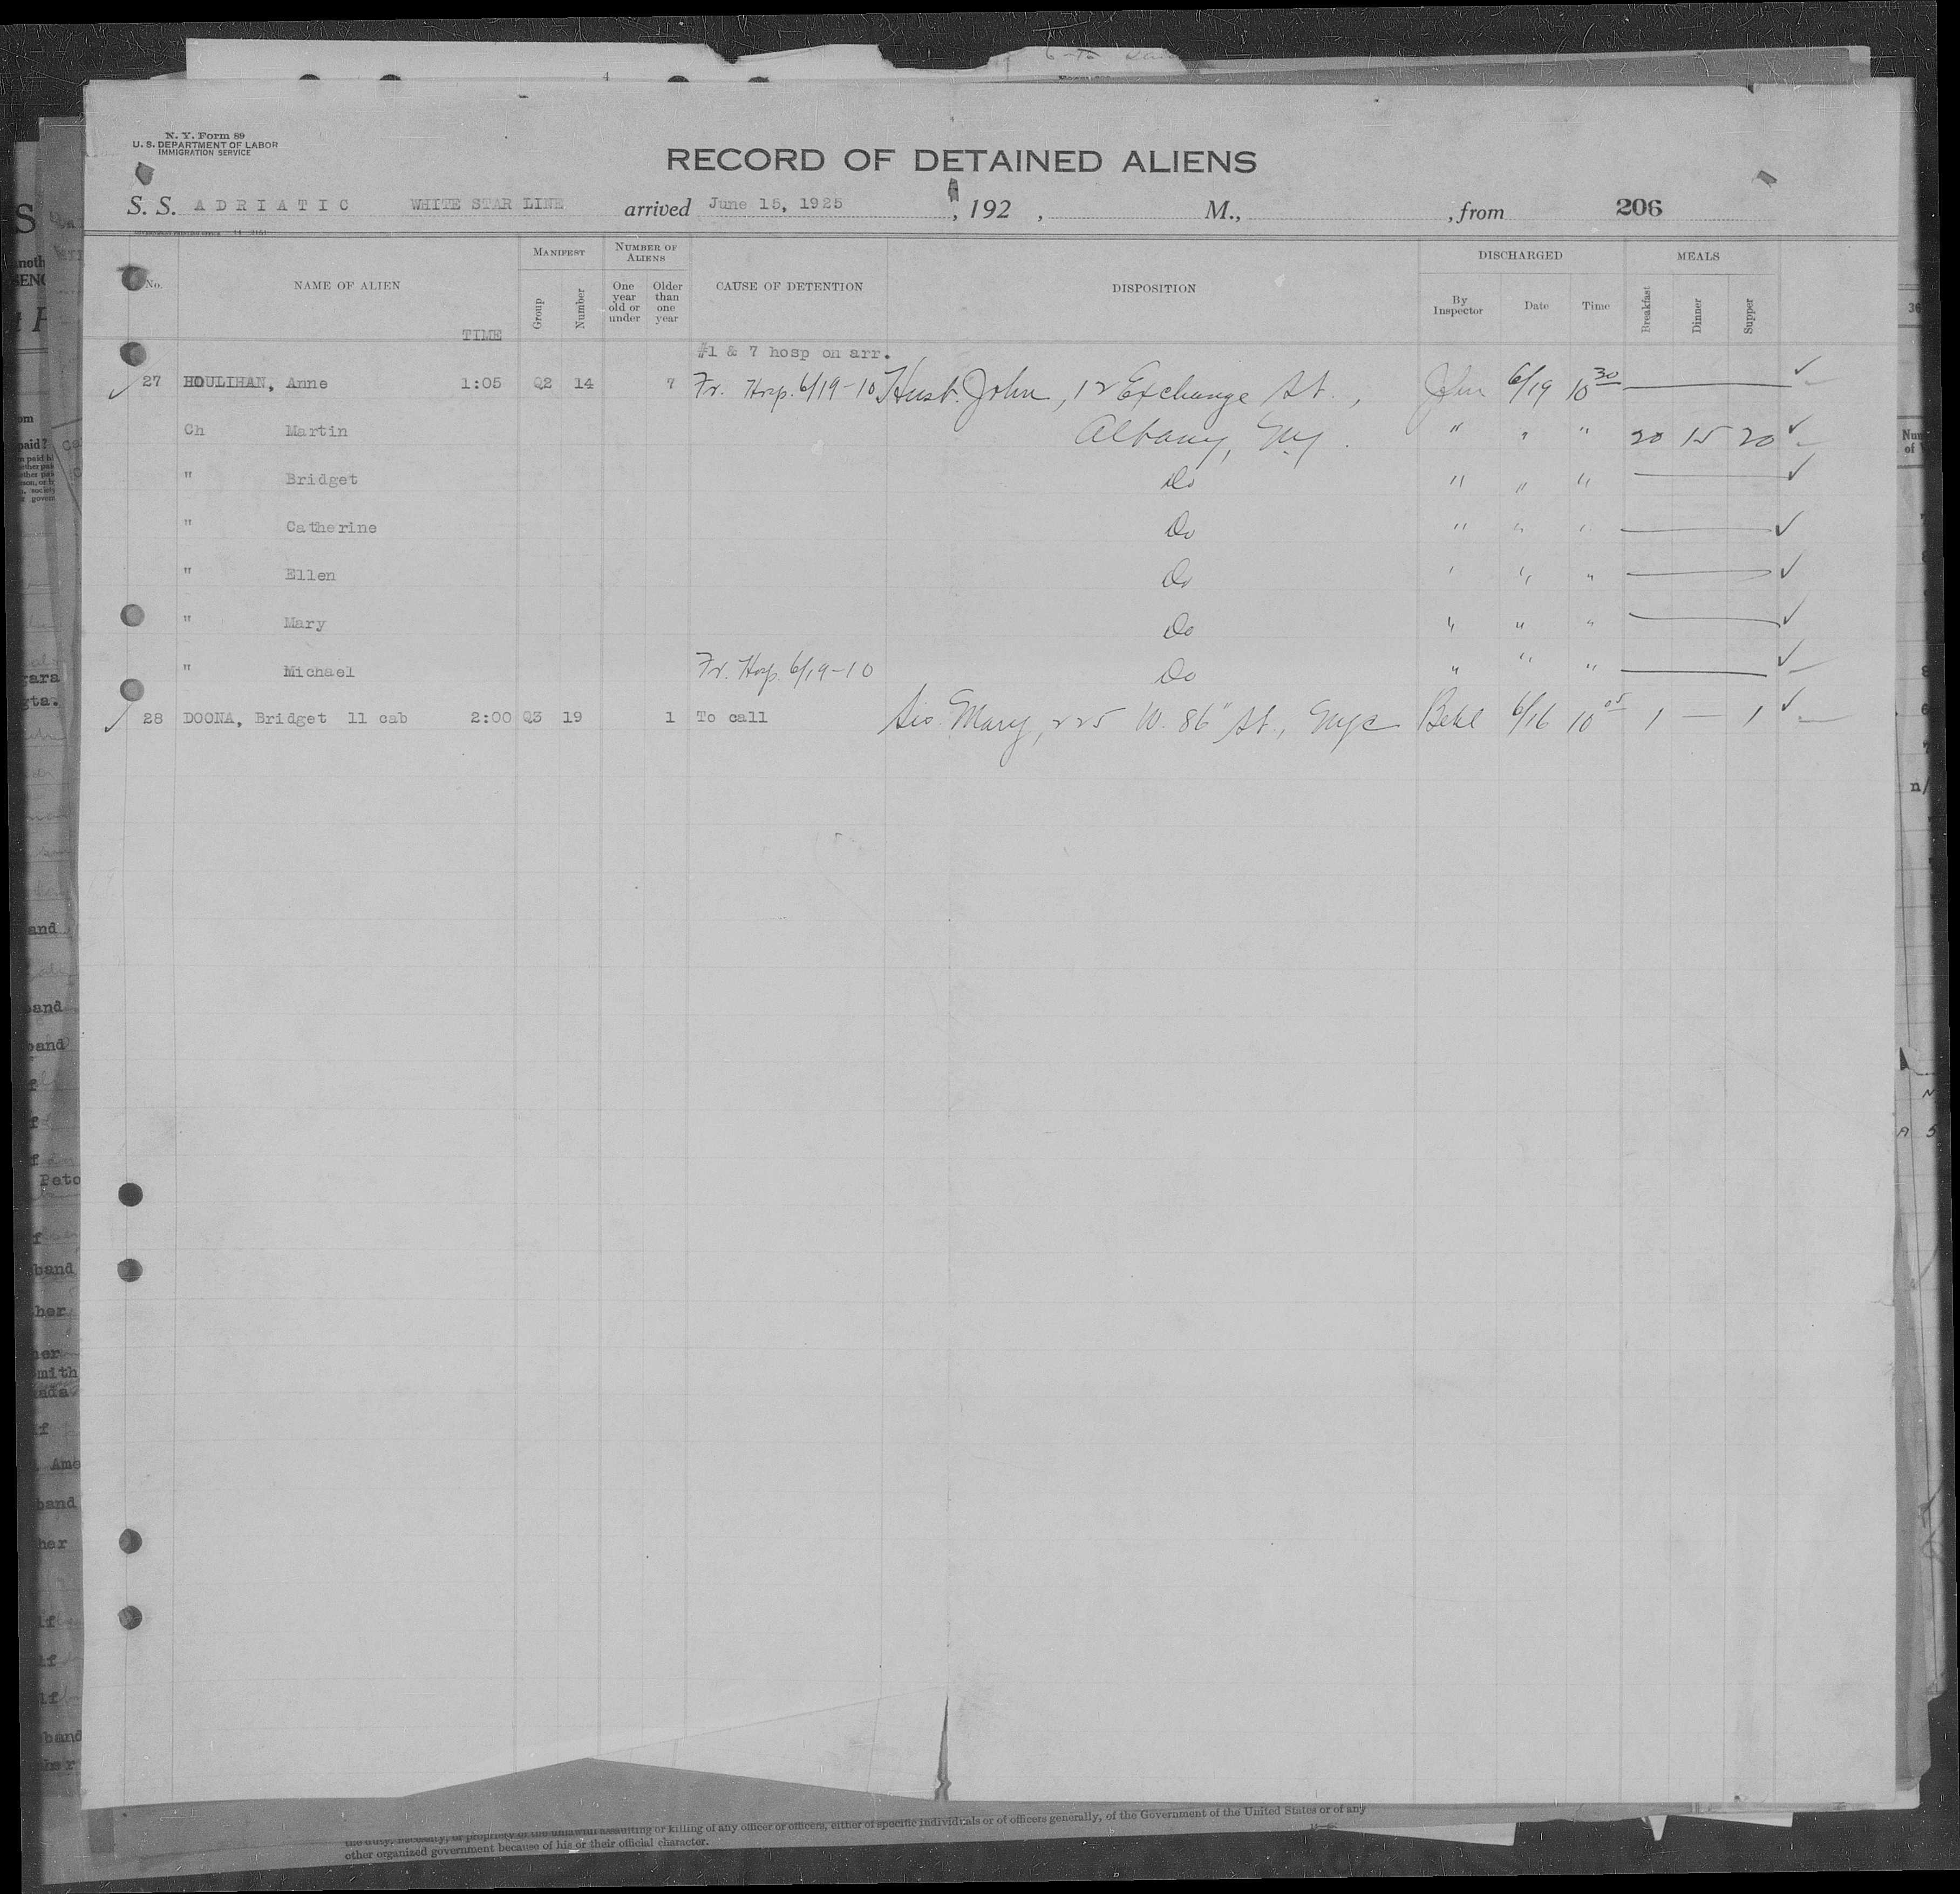 N. Y. Form 89
U. S. DEPARTMENT OF LABOR
IMMIGRATION SERVICE
RECORD OF DETAINED ALIENS
S. S. ADRIATIC WHITE STAR LINE arrived June 15, 1925, 192 , M., , from 206
No. NAME OF ALIEN TIME MANIFEST Group Number NUMBER OF ALIENS One year old or under Older than one year CAUSE OF DETENTION DISPOSITION DISCHARGED By Inspector Date Time MEALS Breakfast Dinner Supper
#1 & 7 hosp on arr.
27 HOULIHAN, Anne 1:05 Q2 14 7 Fr. Hosp. 6/19-10 Husb. John, 12 Exchange St., 6/19 10 30
Ch Martin Albany, NY. " " " 20 15 20
" Bridget Do " " "
" Catherine Do " " "
" Ellen Do " " "
" Mary Do " " "
" Michael Fr. Hosp. 6/19-10 Do " " "
28 DOONA, Bridget 11 cab 2:00 Q3 19 1 To call Sis. Mary, 225 W. 86" St., NYC 6/16 10 05 1 — 1
the duty, necessity, or propriety of the unlawful assaulting or killing of any officer or officers, either of specific individuals or of officers generally, of the Government of the United States or of any
other organized government because of his or their official character.